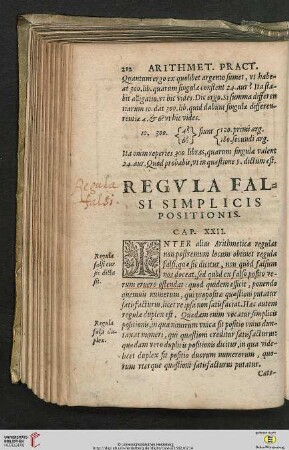 212 ARITHMET. PRACT.
Quantum ergo ex quolibet argento sumet, vt habe-
at 300. lib. quarum singulæ constent 24. aur? Ita sta-
bit alligatio, vt hic vides. Dic ergo. Si summa differen
tiarum 10. dat 300. lib. quid dabunt singulæ differen-
tiæ 4. & 6?
10. 300. {4 6} fiunt {120. primi arg. 180. secundi arg.
Ita enim reperies 300 libras, quarum singulæ valent
24. aur. Quod probabis, vt in quæstione 5. dictum est.
Regula
falsi.
REGVLA FAL-
SI SIMPLICIS
POSITIONIS.
CAP. XXII.
Regula
falsi cur
sic dicta
sit.
INTER alias Arithmeticæ regulas
non postremum locum obtinet regula
falsi, quæ sic dicitur, non quod falsum
nos doceat, sed quod ex falso posito ve-
rum eruere ostendat: quod quidem efficit, ponendo
quemuis numerum, qui propositæ quæstioni putatur
satisfacturus, licet re ipsa non satisfaciat. Hæc autem
Regula
falsi du-
plex.
regula duplex est. Quædam enim vocatur simplicis
positionis, in qua nimirum vnica fit positio vnius dun-
taxat numeri, qui quæstioni creditur satisfacturus:
quædam vero duplicis positionis dicitur, in qua vide-
licet duplex fit positio duorum numerorum, quo-
rum vterque quæstioni satisfacturus putatur.
Cæte-
UNIVERSITÄTS-
BIBLIOTHEK
HEIDELBERG
© Universitätsbibliothek Heidelberg